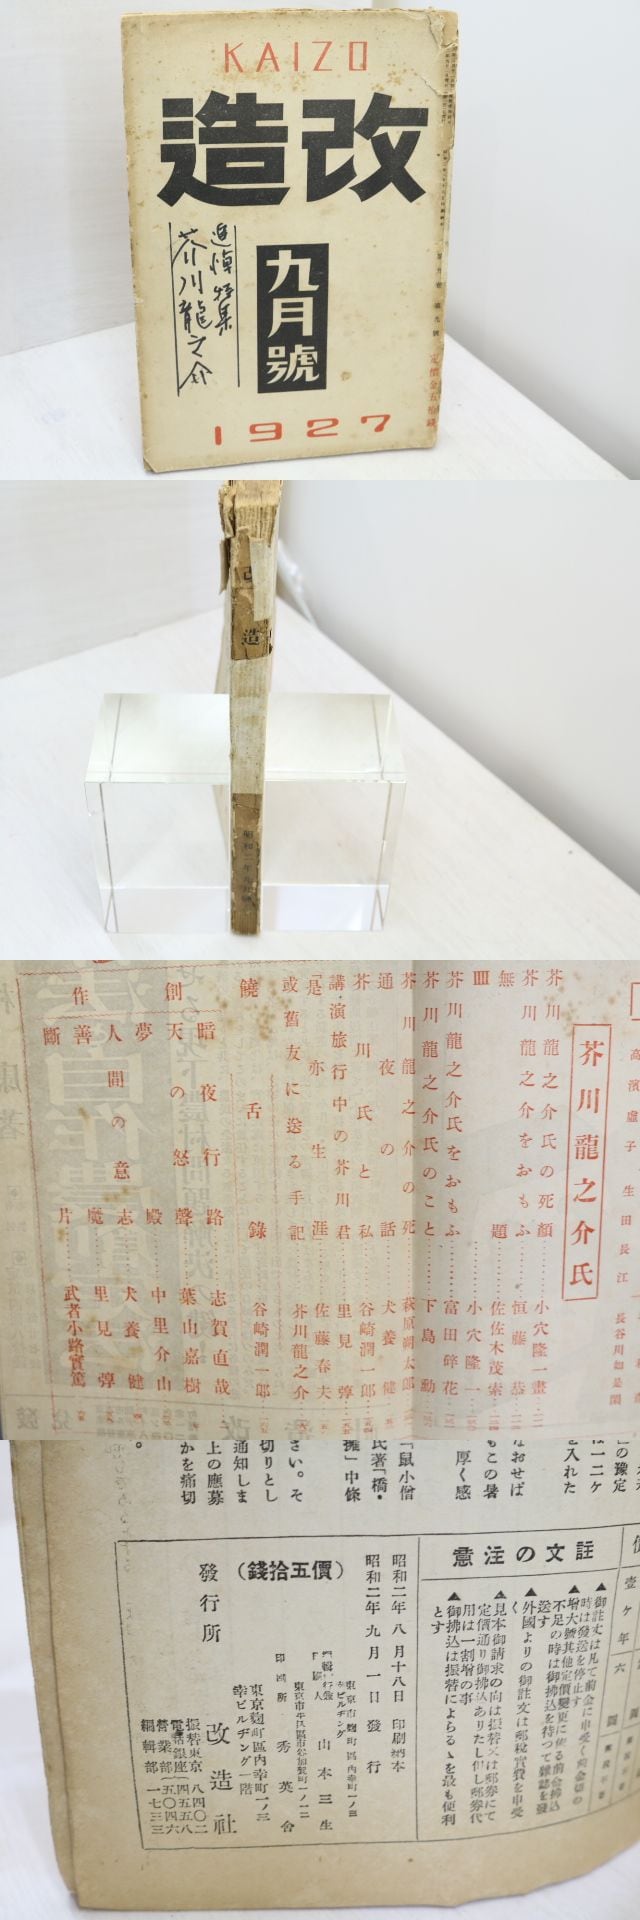 KAIZO
改造
九月號
追悼特集
芥川龍之介
定價金五拾錢
1927
造
昭和二年九月號
高濱虛子 生田長江 長谷川如是閑
芥川龍之介氏
芥川龍之介氏の死顔……小穴隆一畫
芥川龍之介をおもふ……恒藤恭
無題……佐佐木茂索
小穴隆一
芥川龍之介氏をおもふ……富田碎花
芥川龍之介氏のこと……下島勳
芥川龍之介の死……萩原朔太郎
通夜の話……犬養健
芥川氏と私……谷崎潤一郎
講演旅行中の芥川君……里見弴
「是亦生涯」……佐藤春夫
或舊友に送る手記……芥川龍之介
饒舌錄……谷崎潤一郎
創作
暗夜行路……志賀直哉
天の怒聲……葉山嘉樹
夢殿……中里介山
人間の意志……犬養健
善魔……里見弴
斷片……武者小路實篤
の豫定
は一二ケ
を入れた
なおせば
もこの暑
厚く感
「鼠小僧
氏著「橋・
擁」中條
さい。そ
切りとし
通知しま
上の應募
かを痛切
註文の注意
▲御註文は凡て前金に申受く前金切の
時は發送を停止す
▲增大號其他定價變更に依る前金拂込
不足の時は御拂込を待つて雜誌を發
送す
▲外國よりの御註文は郵稅實費を申受
く
▲見本御請求の向は振替又は郵券にて
定價通り御拂込ありたし但し郵券代
用は一割增の事
▲御拂込は振替によらるゝを最も便利
とす
壹ケ年 六圓
(價五拾錢)
昭和二年八月十八日 印刷納本
昭和二年九月一日發行
東京麴町區內幸町一ノ三
幸ビルヂング
山本三生
東京市牛込區市谷加賀町一ノ一二
印刷所 秀英舍
發行所
東京麴町區內幸町一ノ三
幸ビルヂング一階
改造社
振替東京八四〇二
電話銀座
營業部
編輯部一七三三